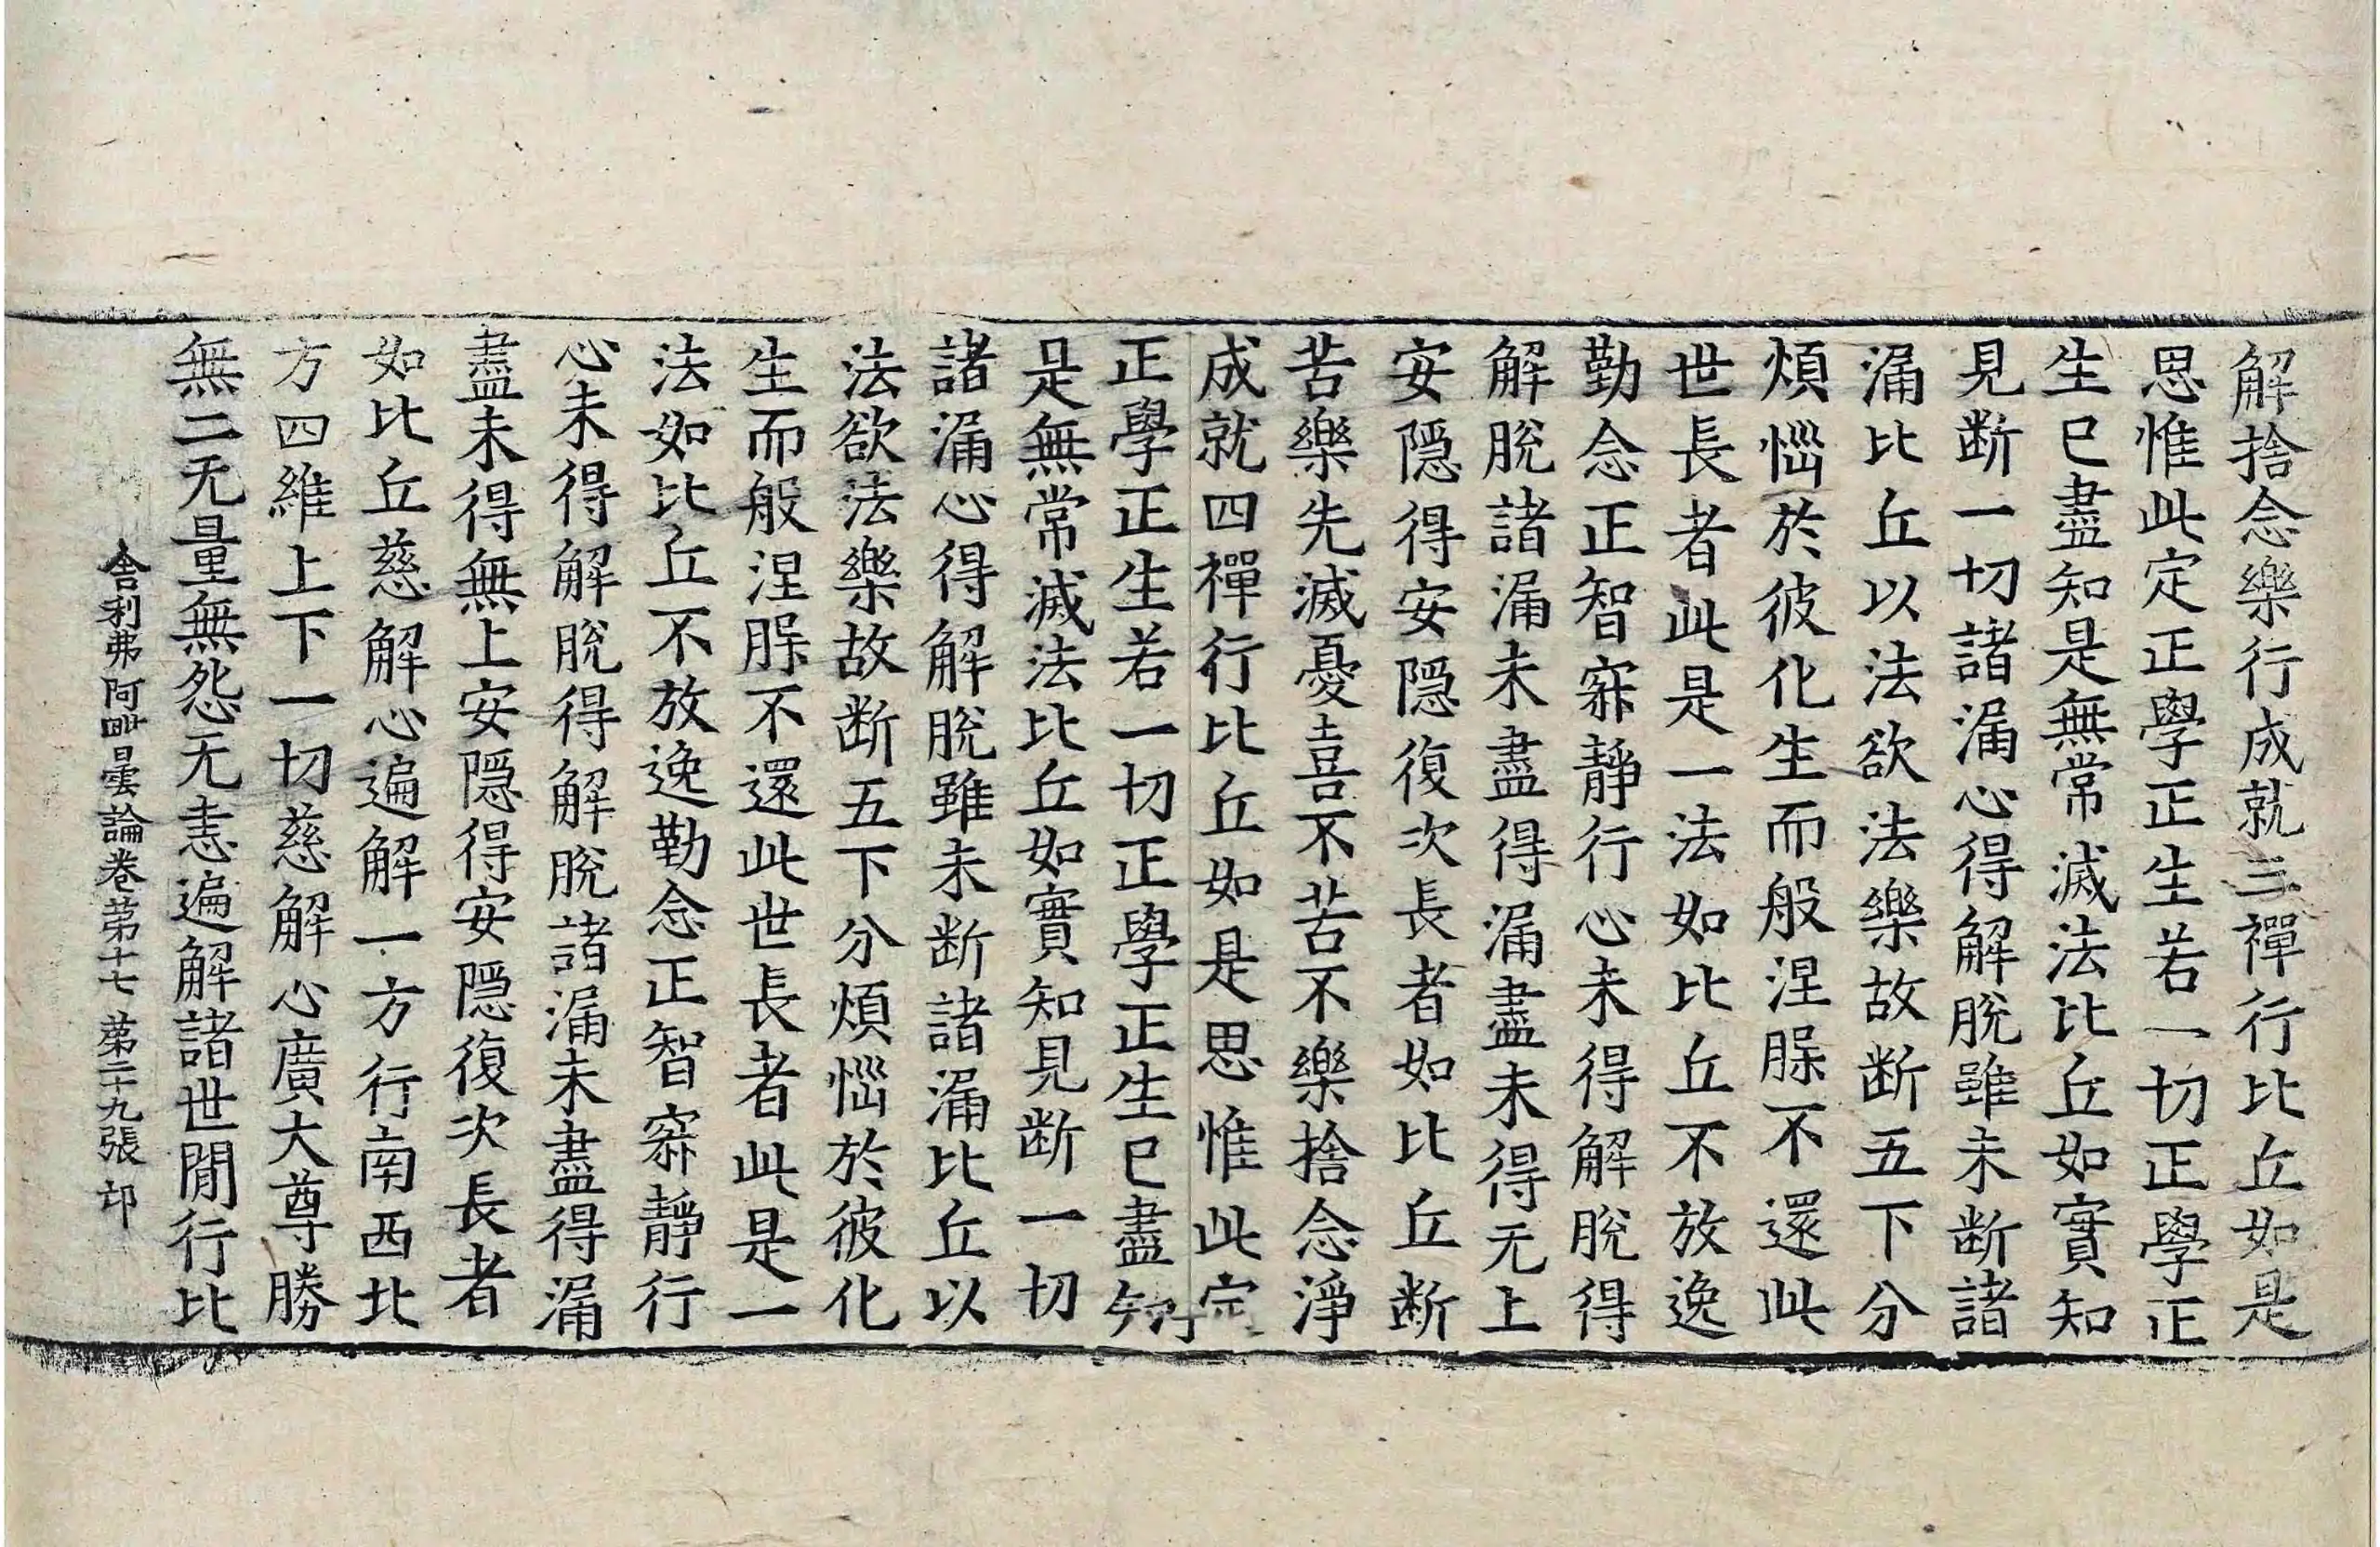 解捨念樂行成就三禪行比丘如是
思惟此定正學正生若一切正學正
生已盡知是無常滅法比丘如實知
見断一切諸漏心得解脫雖未断諸
漏比丘以法欲法樂故断五下分
煩惱於彼化生而般涅槃不還此
世長者此是一法如比丘不放逸
勤念正智寂靜行心未得解脫得
解脫諸漏未盡得漏盡未得无上
安隱得安隱復次長者如比丘断
苦樂先滅憂喜不苦不樂捨念淨
成就四禪行比丘如是思惟此定
正學正生若一切正學正生已盡知
是無常滅法比丘如實知見断一切
諸漏心得解脫雖未断諸漏比丘以
法欲法樂故断五下分煩惱於彼化
生而般涅槃不還此世長者此是一
法如比丘不放逸勤念正智寂靜行
心未得解脫得解脫諸漏未盡得漏
盡未得無上安隱得安隱復次長者
如比丘慈解心遍解一方行南西北
方四維上下一切慈解心廣大尊勝
無二无量無怨无恚遍解諸世間行比
舍利弗阿毗曇論卷第十七 第二十九張